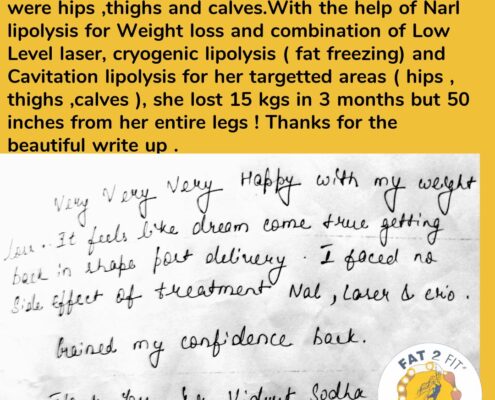 were hips ,thighs and calves.With the help of Narl
lipolysis for Weight loss and combination of Low
Level laser, cryogenic lipolysis ( fat freezing) and
Cavitation lipolysis for her targetted areas ( hips ,
thighs ,calves ), she lost 15 kgs in 3 months but 50
inches from her entire legs ! Thanks for the
beautiful write up .
Very Very Very Happy with my weight
loss.. It feels like dream come true getting
back in shape post delivery. I faced no
side effect of treatment Nal, Laser & crio.
Gained my confidence back.
Vidyut Sodha
FAT 2 FIT